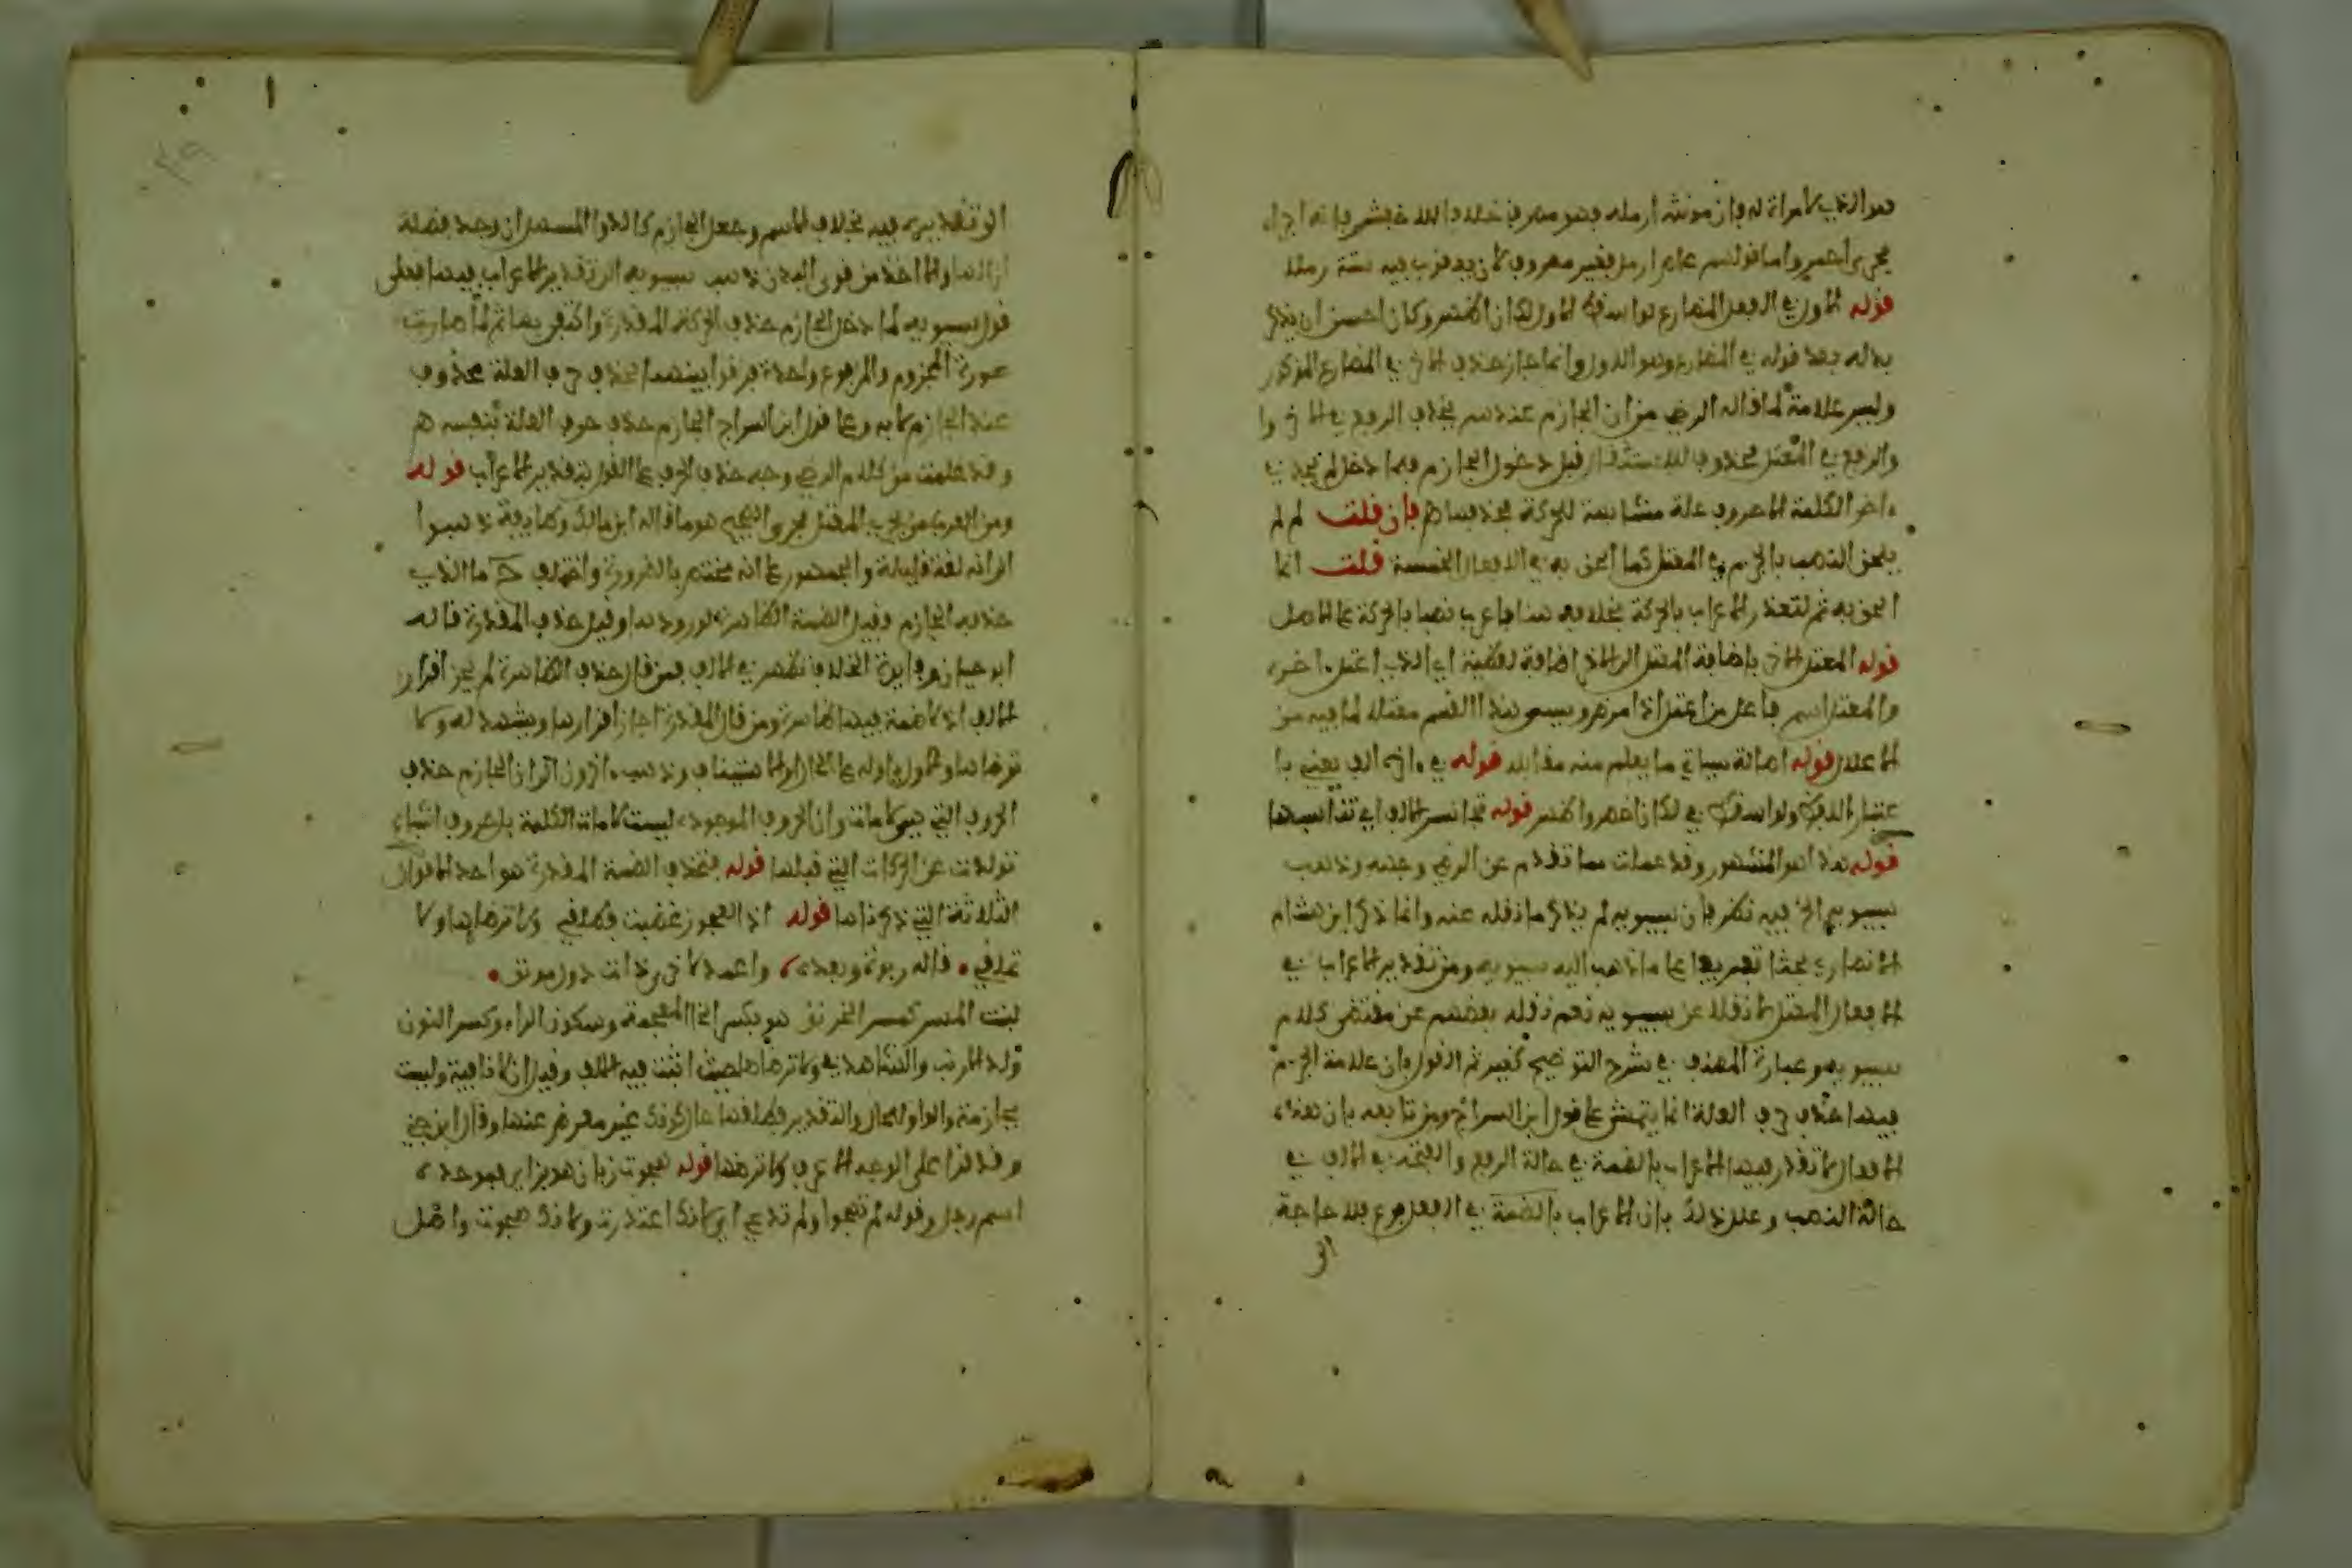 هو الذي لا امراة له فان مونثه ارملة فهو مصروف خلافا للاخفش فانه اجراه
مجرى احمر واما قولهم عام ارمل فغير مصروف لان يعقوب فيه سنة رملا
قوله الاول في الفعل المضارع لو اسقط الاول لكان اخصر وكان احسن ان يذكر
بدله بعد قوله في المضارع وهو الاول وانما جاز حذف الاخر في المضارع المذكور
وليس علامة لما قاله الرضي من ان الجازم عندهم يحذف الرفع في الاخر
والرفع في المعتل محذوف للاستثقال قبل دخول الجازم فلما دخل لم يجد في
ءاخر الكلمة الا حروف علة مشابهة للحركة فحذفها فان قلت لم لم
يلحق النصب بالجزم في المعتل كما الحق به في الافعال الخمسة قلت انما
الحق به ثم لتعذر الاعراب بالحركة بخلافه هنا فاعرب نصبا بالحركة على الاصل
قوله المعتل الاخر باضافة المعتل الى الاخر اضافة لفظية اي الذي اعتل ءاخره
والمعتل اسم فاعل من اعتل اذا مرض وسمي هذا القسم معتلا لما فيه من
الاعلال قوله اصالة سياتي ما يعلم منه مقابله قوله في ءاخر الفه يعني با
عتبار اللفظ ولو اسقط في لكان اخصر واظهر قوله تجانس الالف اي تناسبها
قوله هذا هو المشهور وقد علمت مما تقدم عن الرضي وجهه وذهب
سيبويه الخ فيه نظر فان سيبويه لم يذكر ما نقله عنه وانما ذكر ابن هشام
الانصاري بحثا تفريعا على ما ذهب اليه سيبويه ومن تقدير الاعراب في
الافعال المعتل لا نقلا عن سيبويه نعم نقله بعضهم عن مقتضى كلام
سيبويه وعبارة المصنف في شرح التوضيح كغيره ثم القول بان علامة الجزم
فيها حذف حرف العلة انما يتمشى على قول ابن السراج ومن تابعه بان هذه
الافعال لا تقدر فيها الاعراب بالضمة في حالة الرفع والفتحة في الالف في
حالة النصب وعلل ذلك بان الاعراب بالضمة في الفعل فرع فلا حاجة
الى
الى تقديره فيه بخلاف الاسم وجعل الجازم كالدواء المسهل ان وجد فضلة
ازالها والا اخذ من قوى البدن وذهب سيبويه الى تقدير الاعراب فيها فعلى
قول سيبويه لما دخل الجازم حذف الحركة المقدرة واكتفى بها ثم لما صارت
صورة المجزوم والمرفوع واحدة فرقوا بينهما بحذف حرف العلة محذوف
عند الجازم لا به وعلى قول ابن السراج الجازم حذف حرف العلة بنفسه
وقد علمت من كلام الرضي وجه حذف الحرف على القول بتقدير الاعراب قوله
ومن العرب من يجري المعتل مجرى الصحيح هو ما قاله ابن مالك وطايفة ذهبوا
الى انه لغة قليلة والجمهور على انه مختص بالضرورة واختلف ح ما الذي
حذفه الجازم فقيل الضمة الظاهرة لورودها وقيل حذف المقدرة قاله
ابو حيان وفايدة الخلاف تظهر في الالف فمن قال حذف الظاهرة لم يجز اقرار
الالف اذ لا ضمة فيها ظاهرة ومن قال المقدرة اجاز اقرارها ويشهد له ولا
ترضاها والاول اوله على الحال او الاستيناف وذهب ءاخرون الى ان الجازم حذف
الحروف التي هي لامات وان الحروف الموجودة ليست لامات الكلمة بل حروف اشباع
تولدت عن الحركات التي قبلها قوله فتحذف الضمة المقدرة هو احد الاقوال
الثلاثة التي ذكرناها قوله اذا العجوز غضبت فطلق ولا ترضاها ولا
تملق • قاله روبة وبعده واعمد لاخرى ذات دل مونق •
لينة المس كمس الخرنق هو بكسر الخاء المعجمة وسكون الراء وكسر النون
ولد الارنب والشاهد في ولا ترضاها حيث اثبت فيه الالف وقيل ان لا نافية وليست
بجازمة والواو للحال والتقدير فطلقها حال كونك غير مترض عنها وقال ابن جني
وقد قرا على الوجه الاعرف ولا ترضها قوله هجوت زبان هو بزاي فموحدة
اسم رجل وقوله لم تهجوا ولم تدع اي لانك اعتذرت ولانك هجوت واصل